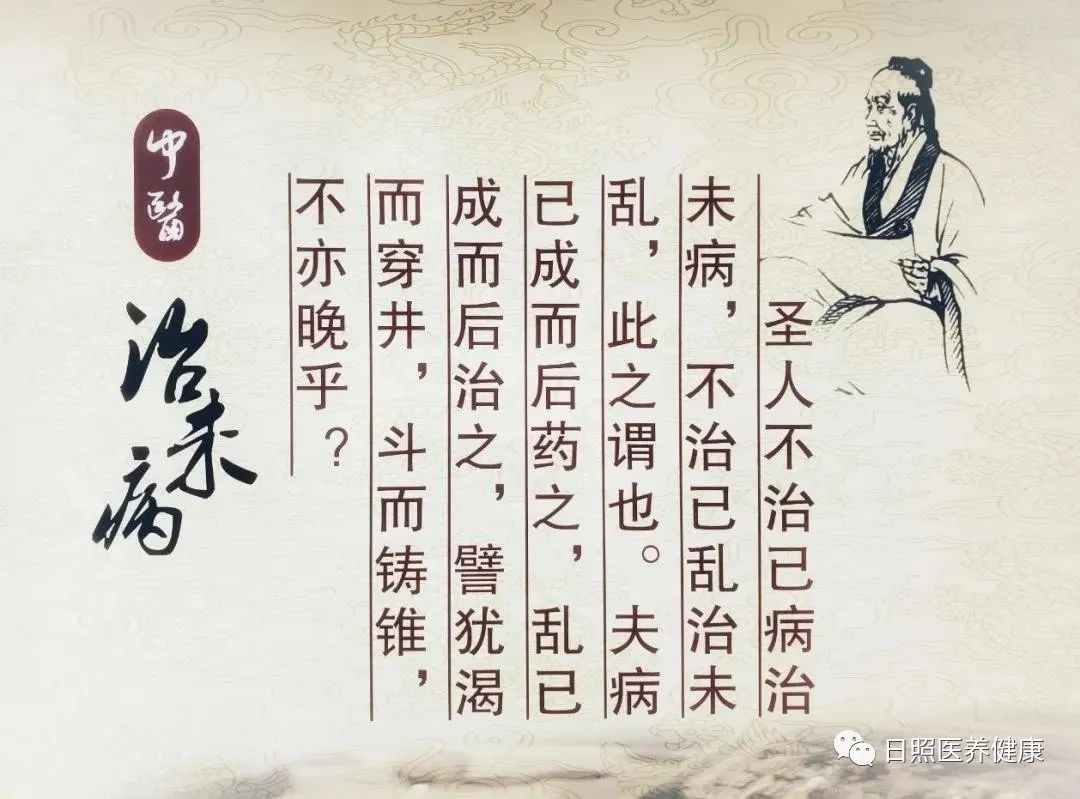 圣人不治已病治
未病，不治已乱治未
乱，此之谓也。夫病
已成而后药之，乱已
成而后治之，譬犹渴
而穿井，斗而铸锥，
不亦晚乎？
中醫
治未病
日照医养健康